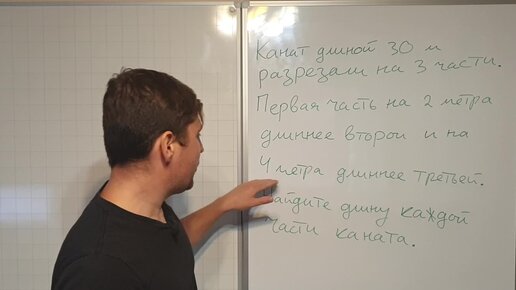 Канат длиной 30 м
разрезали на 3 части.
Первая часть на 2 метра
длиннее второй и на
4 метра длиннее третьей.
айдите длину каждой
части каната.